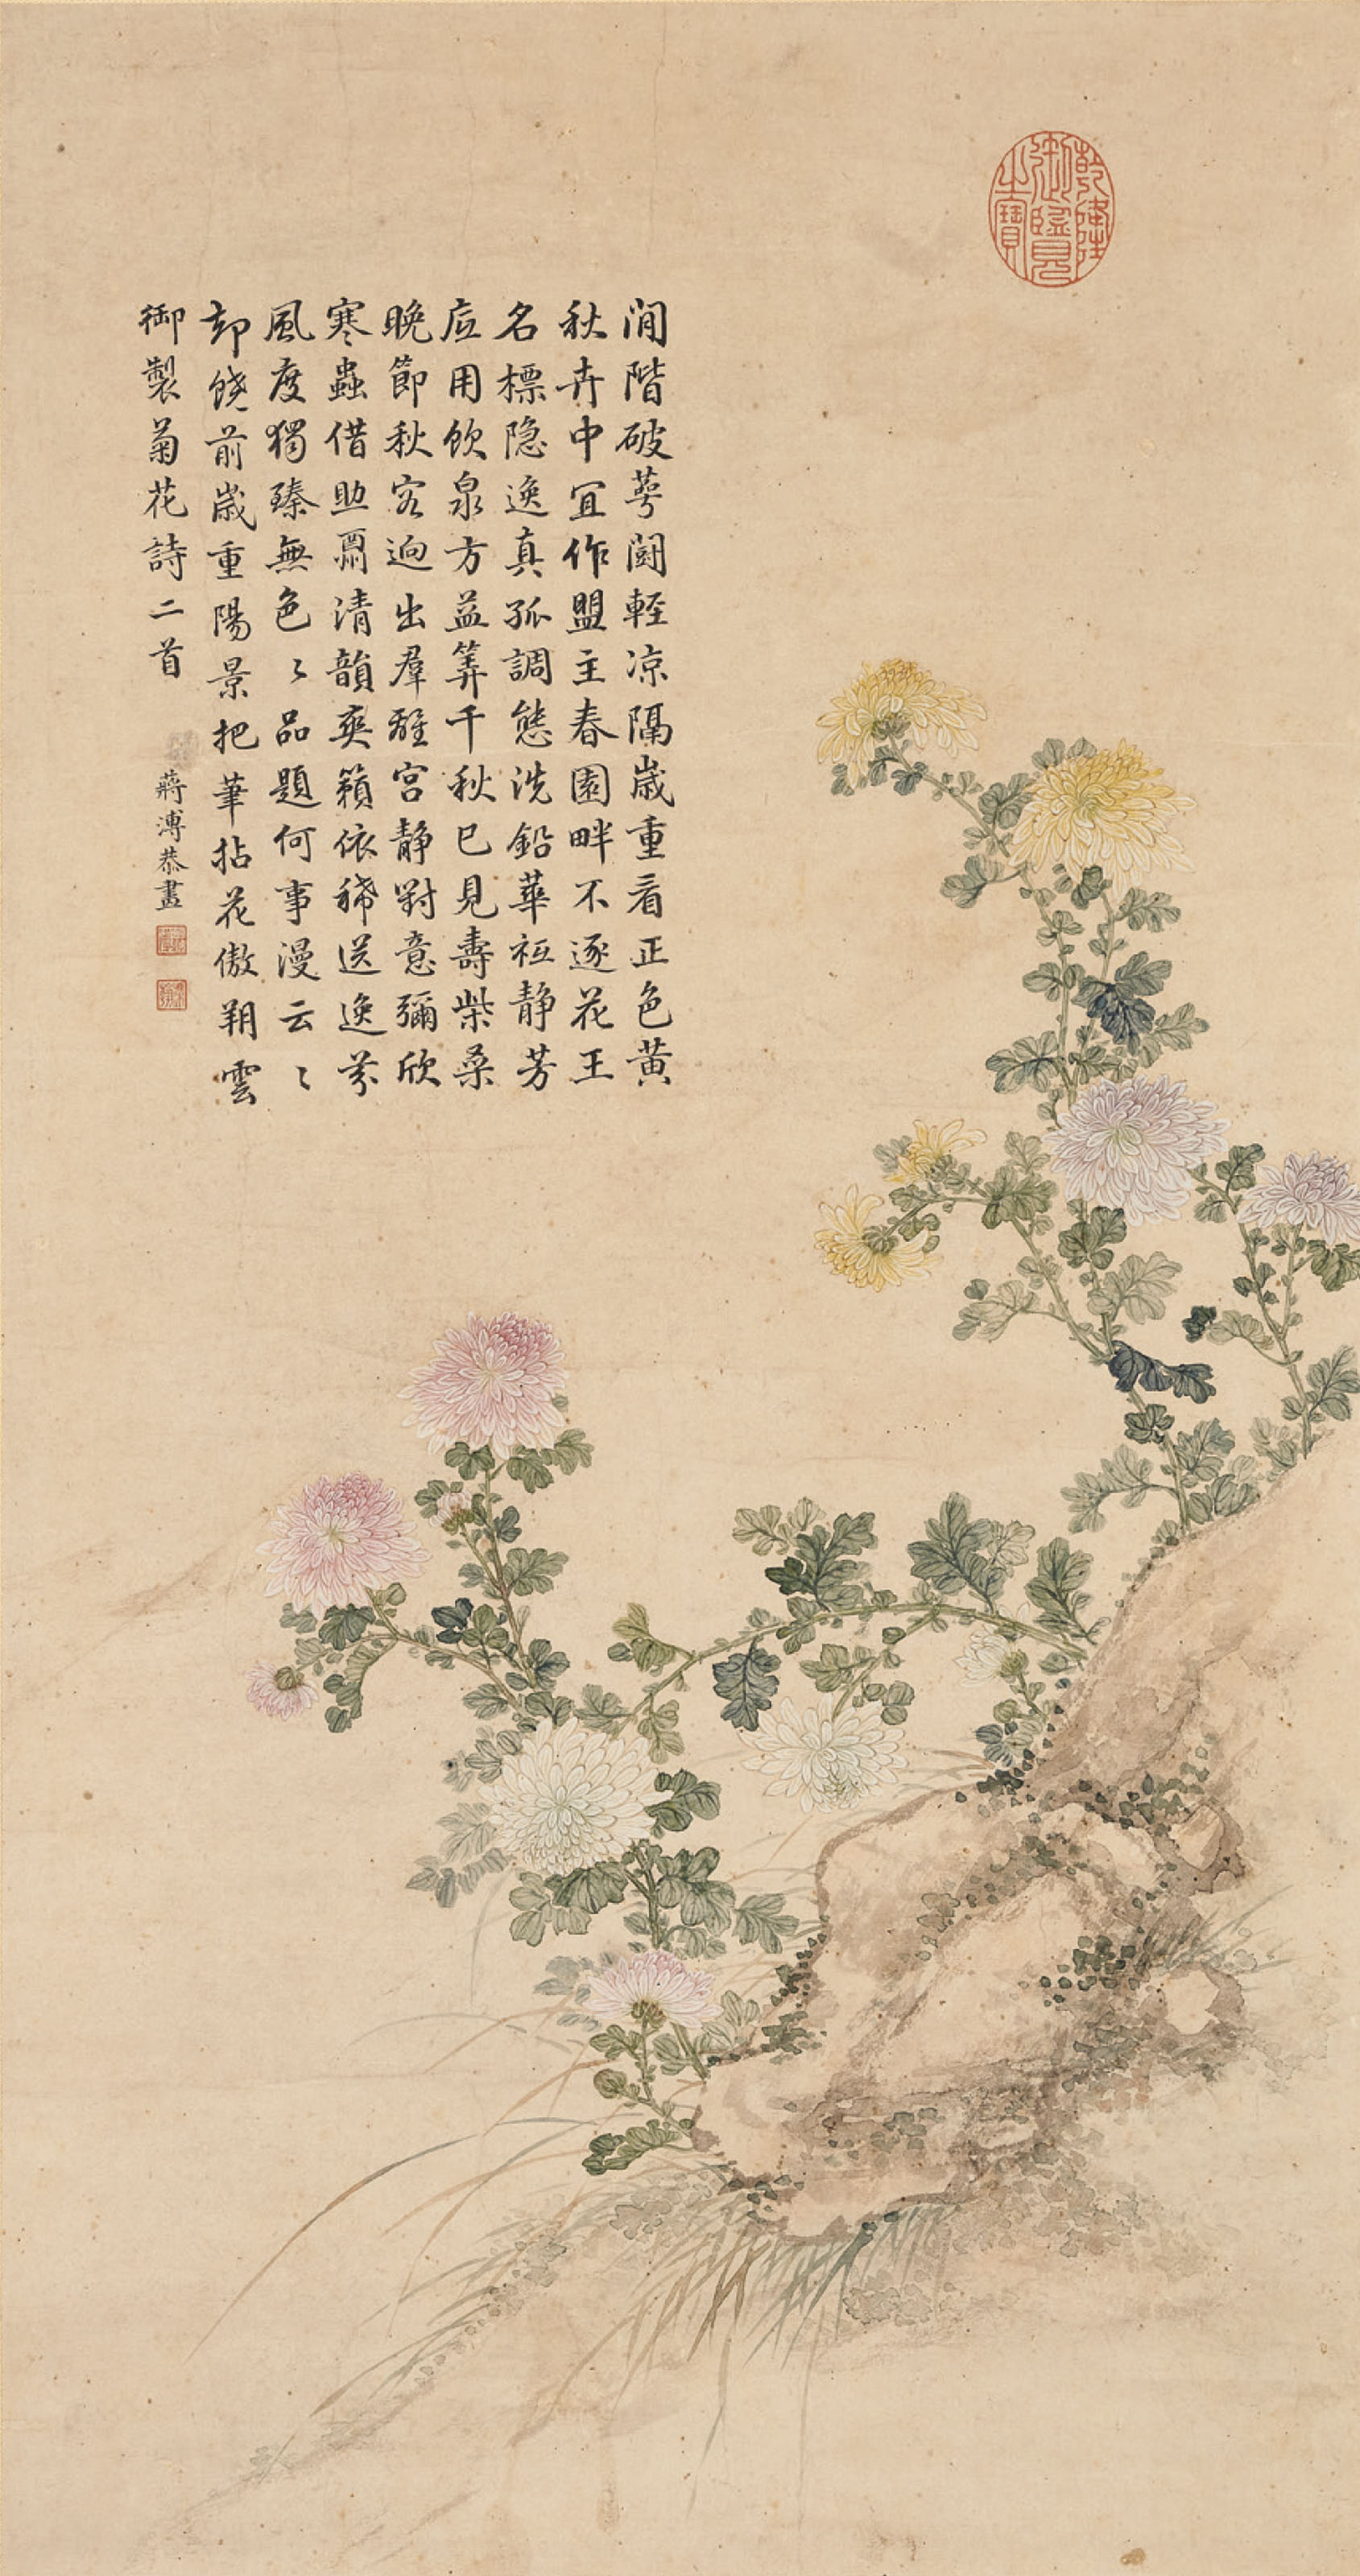 乾隆御覽之寶
閒階破萼鬪輕凉隔歲重看正色黃
秋卉中宜作盟主春園畔不逐花王
名標隐逸真孤調態洗鉛華祗静芳
应用飲泉方益筭千秋已見壽柴桑
晚節秋容迥出羣離宮静對意彌欣
寒蟲借助爾清韻爽籟依稀送逸芬
風度獨臻無色〻品題何事漫云〻
却饒前歲重陽景把筆拈花傲朔雲
御製菊花詩二首
蔣溥恭畫